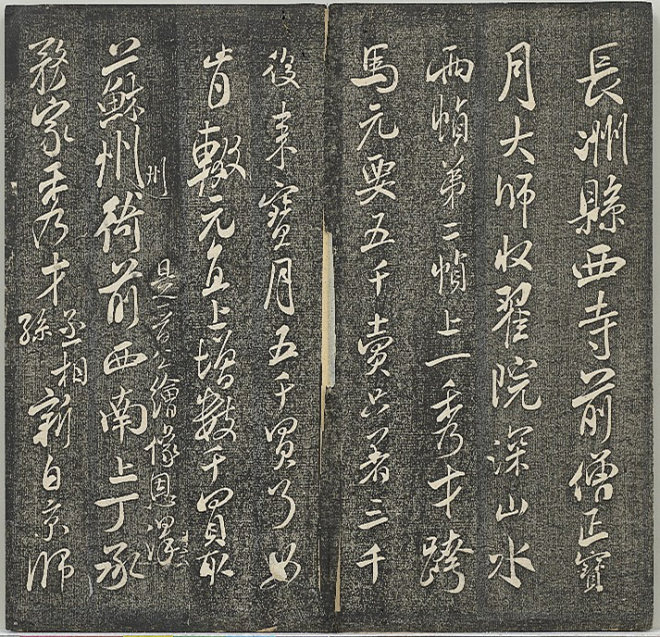 長洲縣西寺前僧正寶
月大師收翟院深山水
兩幀第二幀上一秀才跨
馬元要五千賣只著三千
後來寶月五千買了如
肯輟元直上增數千買取
州
是晉公繪像恩澤
一蘇州衙前西南上丁承
務家秀才丞相孫新自京師